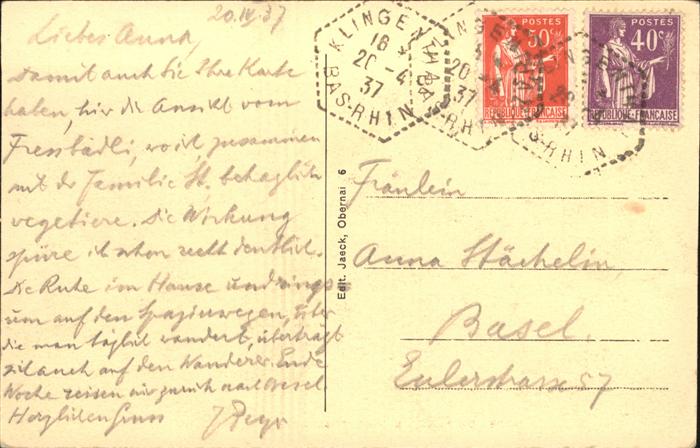 20.IV.37
Liebes Anna,
Damit auch Sie Ihre Karte
haben, hier die Ansicht vom
Fressbädli, wo ich zusammen
mit der Familie St. behaglich
vegetiere. Die Wirkung
spüre ich schon recht deutlich.
Die Ruhe im Hause und rings=
um auf den Spazierwegen, über
die man täglich wandert, überträgt
sich auch auf den Wanderer. Ende
Woche reisen wir zurück nach Basel.
Herzlichen Gruss
KLINGENTHAL
18
20-4
37
BAS-RHIN
POSTES
50c
RÉPUBLIQUE-FRANÇAISE
POSTES
40c
RÉPUBLIQUE-FRANÇAISE
Edit. Jaeck, Obernai 6
Fräulein
Anna Stächelin,
Basel.
Eulerstrasse 57